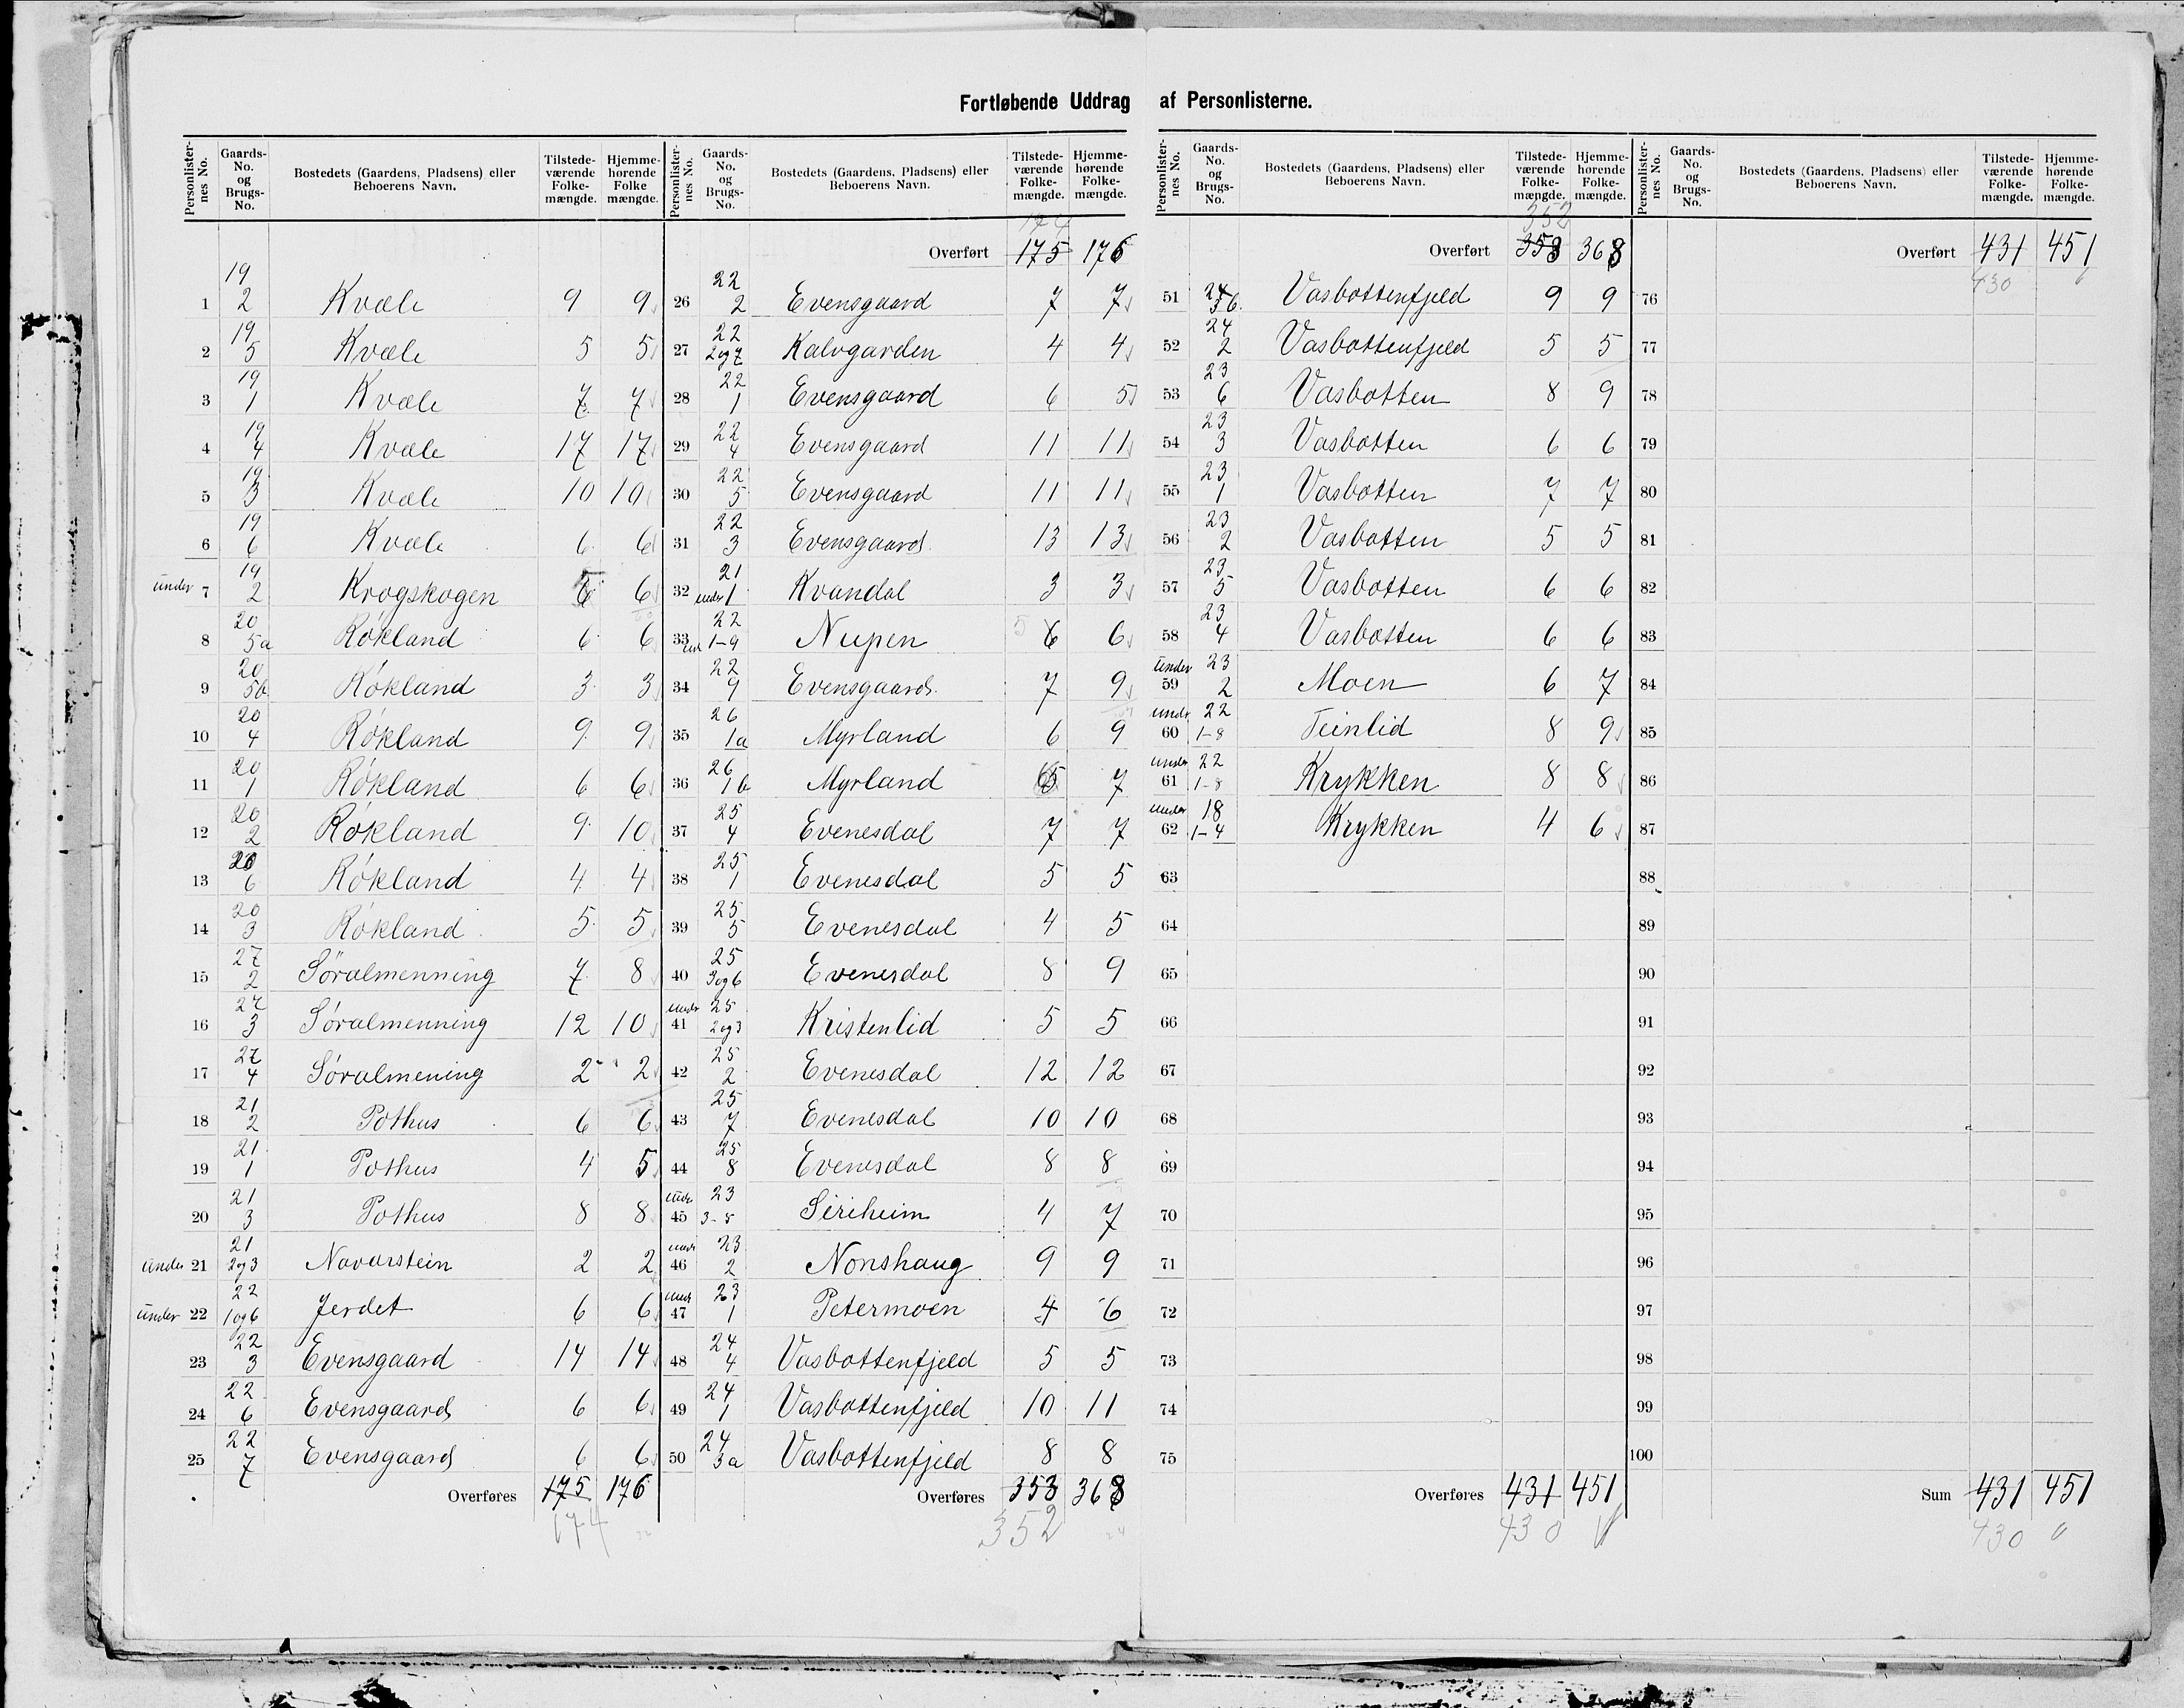 Fortløbende Uddrag af Personlisterne.
Personlisternes No. Gaards-No. og Brugs-No. Bostedets (Gaardens, Pladsens) eller Beboerens Navn. Tilstedeværende Folkemængde. Hjemmehørende Folkemængde.
1 19 2 Kvæle 9 9
2 19 5 Kvæle 5 5
3 19 1 Kvæle 7 7
4 19 4 Kvæle 17 17
5 19 3 Kvæle 10 10
6 19 6 Kvæle 6 6
under 7 19 2 Krogskogen 6 6
8 20 5a Røkland 6 6
9 20 5b Røkland 3 3
10 20 4 Røkland 9 9
11 20 1 Røkland 6 6
12 20 2 Røkland 9 10
13 20 6 Røkland 4 4
14 20 3 Røkland 5 5
15 27 2 Søralmenning 7 8
16 27 3 Søralmenning 12 10
17 27 4 Søralmening 2 2
18 21 2 Pothus 6 6
19 21 1 Pothus 4 5
20 21 3 Pothus 8 8
under 21 21 2og3 Navarstein 2 2
under 22 22 1og6 Jerdet 6 6
23 22 3 Evensgaard 14 14
24 22 6 Evensgaard 6 6
25 22 7 Evensgaard 6 6
Overføres 175 176
174
Personlisternes No. Gaards-No. og Brugs-No. Bostedets (Gaardens, Pladsens) eller Beboerens Navn. Tilstedeværende Folkemængde. Hjemmehørende Folkemængde.
174
Overført 175 176
26 22 2 Evensgaard 7 7
27 22 2og7 Kalvgarden 4 4
28 22 1 Evensgaard 6 5
29 22 4 Evensgaard 11 11
30 22 5 Evensgaard 11 11
31 22 3 Evensgaard 13 13
32 under 21 1 Kvandal 3 3
33 und 22 1-9 Nupen 5 6 6
34 22 9 Evensgaard 7 9
35 26 1a Myrland 6 9
36 26 1b Myrland 5 7
37 25 4 Evenesdal 7 7
38 25 1 Evenesdal 5 5
39 25 5 Evenesdal 4 5
40 25 3og6 Evenesdal 8 9
under 41 25 2og3 Kristenlid 5 5
42 25 2 Evenesdal 12 12
43 25 7 Evenesdal 10 10
44 25 8 Evenesdal 8 8
under 45 23 3-5 Siriheim 4 7
under 46 23 2 Nonshaug 9 9
under 47 23 1 Petermoen 4 6
48 24 4 Vasbottenfjeld 5 5
49 24 1 Vasbottenfjeld 10 11
50 24 3a Vasbottenfjeld 8 8
Overføres 353 368
352
Personlisternes No. Gaards-No. og Brugs-No. Bostedets (Gaardens, Pladsens) eller Beboerens Navn. Tilstedeværende Folkemængde. Hjemmehørende Folkemængde.
352
Overført 353 368
51 24 3b. Vasbottenfjeld 9 9
52 24 2 Vasbottenfjeld 5 5
53 23 6 Vasbotten 8 9
54 23 3 Vasbotten 6 6
55 23 1 Vasbotten 7 7
56 23 2 Vasbotten 5 5
57 23 5 Vasbotten 6 6
58 23 4 Vasbotten 6 6
under 59 23 2 Moen 6 7
under 60 22 1-8 Teinlid 8 9
under 61 22 1-8 Krykken 8 8
under 62 18 1-4 Krykken 4 6
63
64
65
66
67
68
69
70
71
72
73
74
75
Overføres 431 451
430
Personlisternes No. Gaards-No. og Brugs-No. Bostedets (Gaardens, Pladsens) eller Beboerens Navn. Tilstedeværende Folkemængde. Hjemmehørende Folkemængde.
Overført 431 451
430
76
77
78
79
80
81
82
83
84
85
86
87
88
89
90
91
92
93
94
95
96
97
98
99
100
Sum 431 451
430